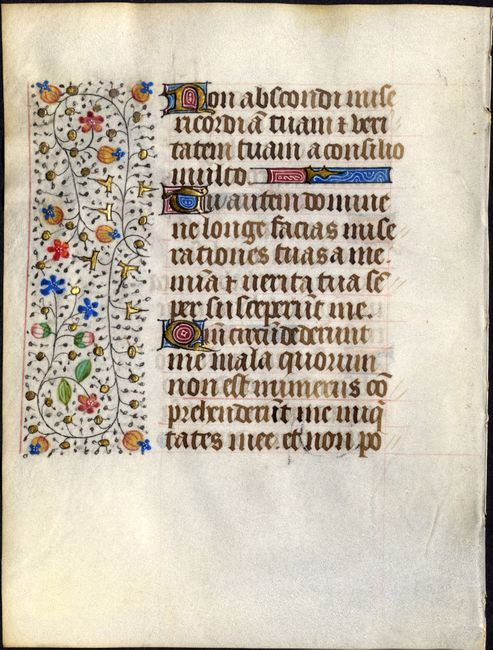 Non abscondi mise
ricordiā tuam ⁊ veri
tatem tuam a consilio
multo.
Tu autem domine
ne longe facias mise
rationes tuas a me.
mīa ⁊ verita tua sē
per susceperūt me.
Qm̄ circūdederunt
me mala quorum
non est numerus cō
prehenderūt me iniq̄
tates mee. et non po